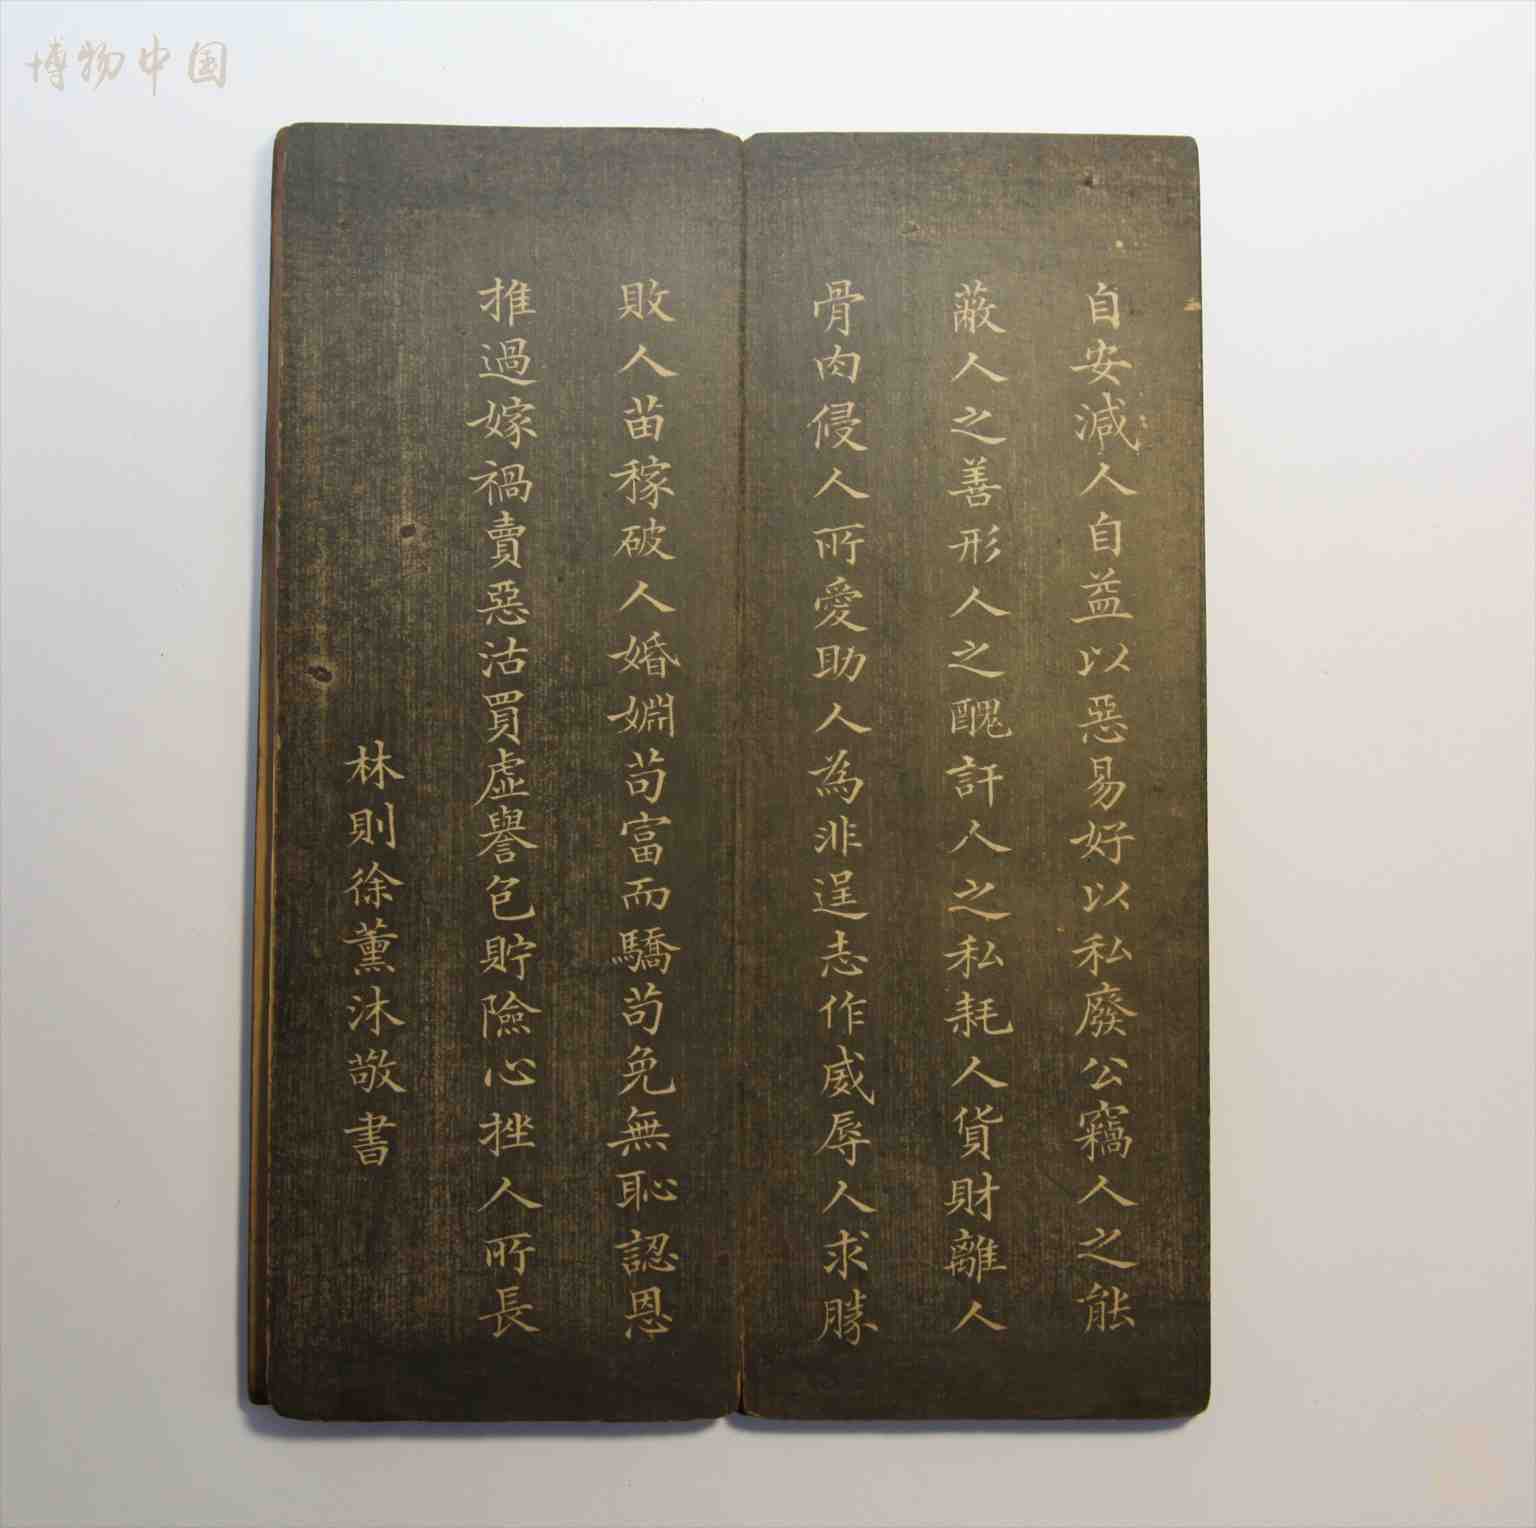 博物中国
自安減人自益以惡易好以私廢公竊人之能
蔽人之善形人之醜訐人之私耗人貨財離人
骨肉侵人所愛助人為非逞志作威辱人求勝
敗人苗稼破人婚姻苟富而驕苟免無恥認恩
推過嫁禍賣惡沽買虛譽包貯險心挫人所長
林則徐薰沐敬書